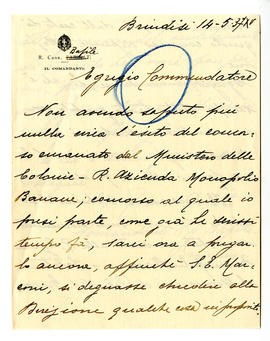 Brindisi 14-5-37 XV
Basile
R. Cann.
IL COMANDANTE
Egregio Commendatore
Non avendo saputo più
nulla circa l'esito del concor-
so emanato dal Ministero delle
Colonie - R. Azienda Monopolio
Banane; concorso al quale io
presi parte, come già Le scrissi
tempo fà, sarei ora a pregar-
la ancora, affinché S. E. Mar-
coni, si degnasse chiedere alla
Direzione qualche cosa in proposito.